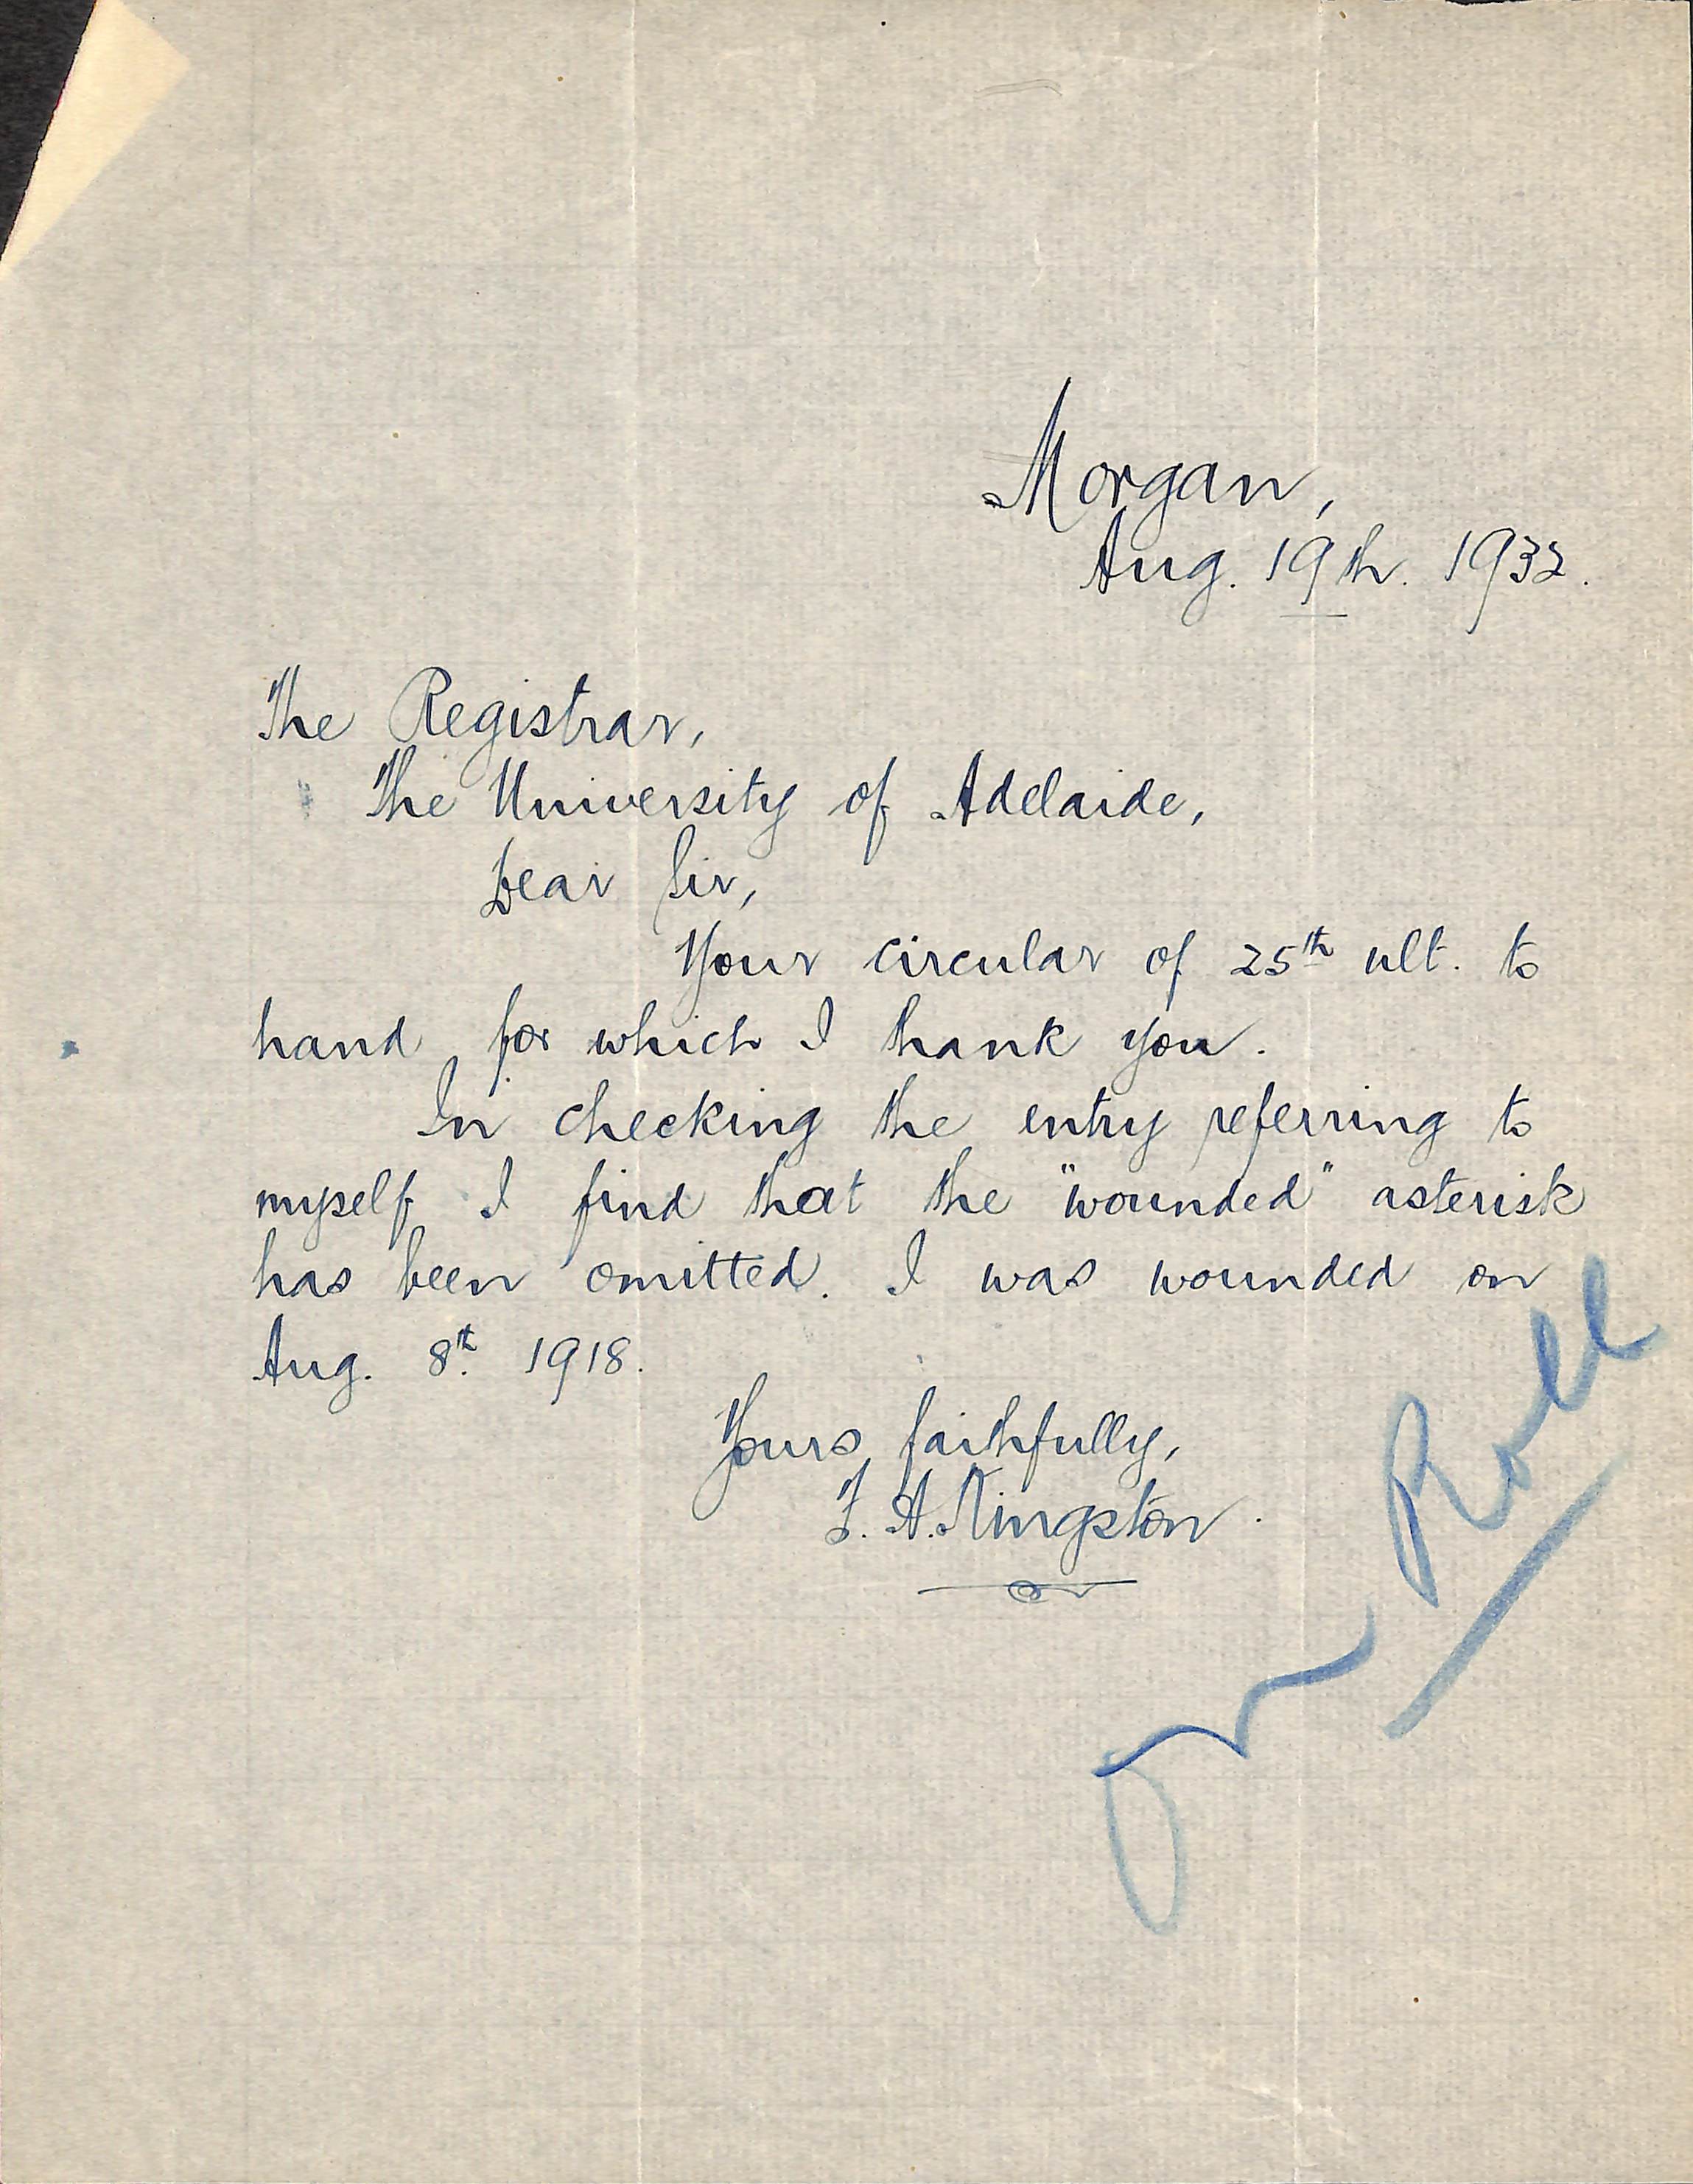 Morgan,
Aug. 19th. 1932.
The Registrar,
The University of Adelaide,
Dear Sir,
Your circular of 25th ult. to
hand for which I thank you.
In checking the entry referring to
myself I find that the "wounded" asterisk
has been omitted. I was wounded on
Aug. 8th. 1918.
Yours faithfully,
F. A. Kingston.
On Roll